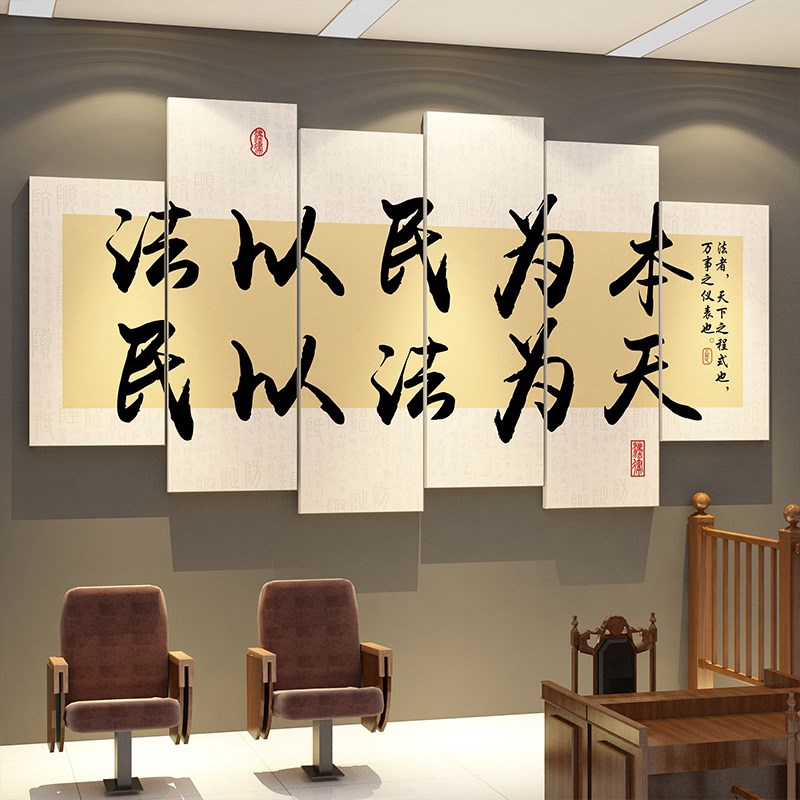 法以民为本
民以法为天
法者，天下之程式也，
万事之仪表也。